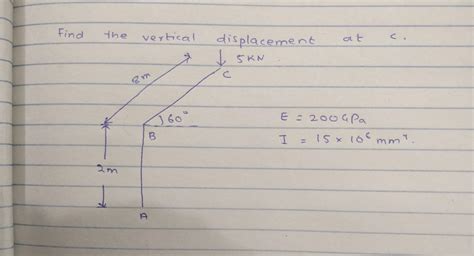 Find the vertical displacement at c.
5KN
C
8m
60°
B
E = 200GPa
I = 15 × 10⁶ mm⁴.
2m
A